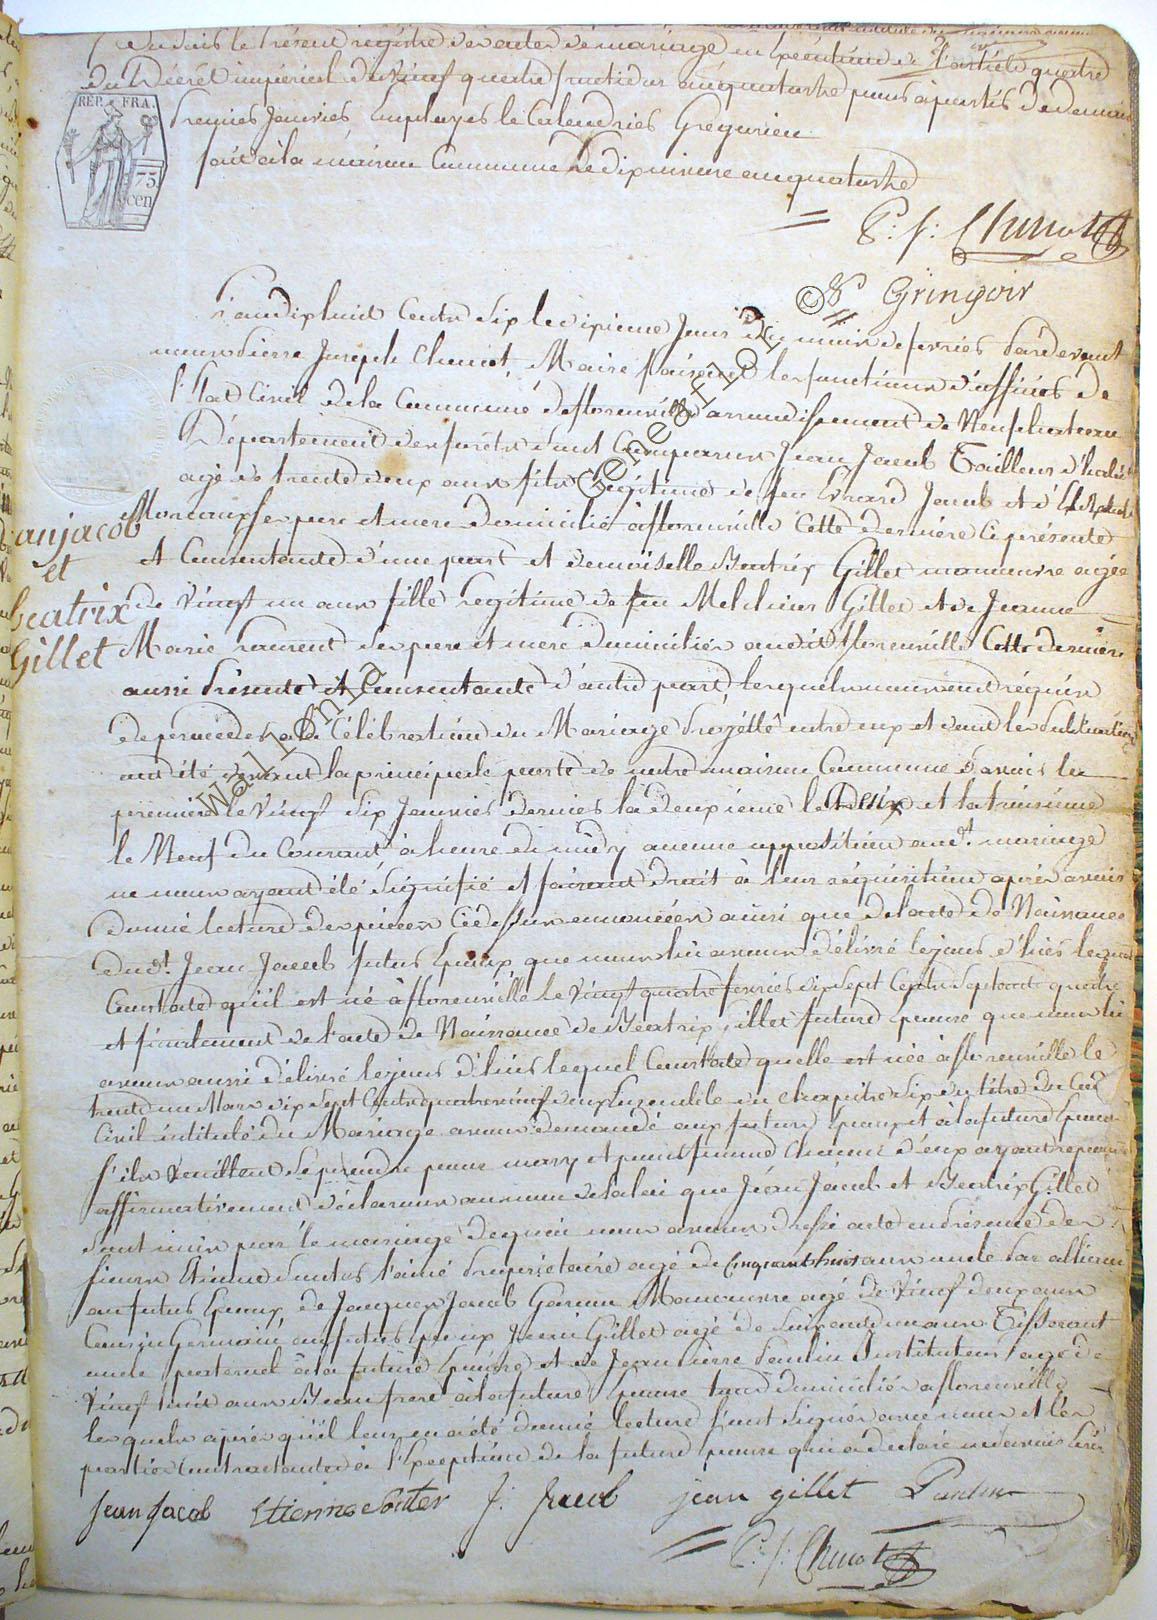 du Décret imperial du Vingt quatre fructidor an quatorze pour à partir de demain
REP. FRA.
premier Janvier, Employer le Calendrier Grégorien
75
cen
fait à la maison Commune le dix nivose an quatorze
P: J: Chenot
© Gringoir
L'an dix huit Cents six le jour du mois de fevrier Pardevant
nous Pierre Joseph Chenot, Maire faisant les fonctions d'officier de
l'Etat Civil de la Commune de florenville arrondissement de Neufchateau
Département des forêts sont Comparus Jean Jacob Tailleur d'habit
agé de trente deux ans fils Legitime de feu Jacob et d'
ses pere et mere domicilié à florenville Cette derniere ci présente
an jacob
et Consentante d'une part et demoiselle Beatrix Gillet manouvre agée
et
de Vingt un ans fille Legitime de feu Melchior Gillet et de Jeanne
Beatrix
Gillet
Marie Laurent ses pere et mere domiciliés audit florenville Cette derniere
aussi Présente et Consentante d'autre part, lesquels nous ont réquis
de proceder à la Célébration du Mariage Projetté entre eux et dont les Publications
ont été devant la principale porte de notre maison Commune Savoir la
premiere le Vingt six Janvier dernier la deuxieme le Deux et la troisieme
le Neuf du Courant à heure de midy aucune oppositition audt. mariage
ne nous ayant été Signifié et faisant droit à leur réquisition après avoir
donné lecture des pieces Cidessus enoncéés ainsi que de l'acte de Naissance
dudt. Jean Jacob futur Epoux que nous lui avons délivré le jour d'hier lequel
Constate qu'il est né à florenville le Vingt quatre fevrier dix Sept Cents Septante quatre
et finalement de l'acte de Naissance de Beatrix Gillet future Epouse que nous lui
avons aussi délivré le jour d'hier lequel Constate quelle est née à florenville le
trente un Mars dix Sept Cents quatre vingt du chapitre Six du titre du Code
Civil intitulé du Mariage avons demandé aux futur Epoux et à la future Epouse
s'ils Veuillent Se prendre pour mary et pour femme Chacun d'eux ayant repondu
affirmativement déclarons au nom de la loi que Jean Jacob et Beatrix Gillet
sont unis par le mariage dequoi nous avons dressé acte en présence des
sieurs Etienne Souter l'ainé Proprietaire agé de Cinquante huit ans oncle Par alliance
au futur Epoux, de Jacques Jacob Garcon Manouvre agé de Vingt deux ans
Cousin Germain au futur Epoux Jean Gillet agé de Soixante un ans Tisserant
oncle paternel à la future Epouse et de Jean Pierre Poulin Instituteur agé de
Vingt huit ans Beau frere à la future Epouse tous domiciliés à florenville
lesquels après qu'il leur en a été donné lecture l'ont Signés avec nous et les
parties Contractantes à l'Exception de la future Epouse qui a declaré ne savoir
jean jacob Etienne Souter J: Jacob jean gillet Poulin
P: J: Chenot
Wallonia © GeneaFlor